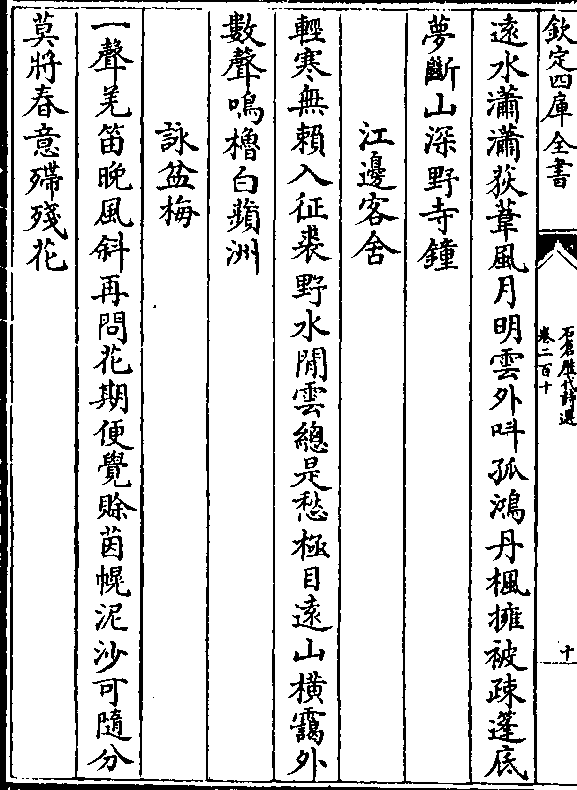 欽定四庫全書
石倉歷代詩選
卷二百十
十
遠水瀟瀟荻葦風月明雲外呌孤鴻丹楓擁被疎蓬底
夢斷山深野寺鐘
江邊客舍
輕寒無賴入征裘野水閒雲總是愁極目遠山橫靄外
數聲鳴櫓白蘋洲
詠盆梅
一聲羌笛晚風斜再問花期便覺賒茵幌泥沙可隨分
莫將春意殢殘花